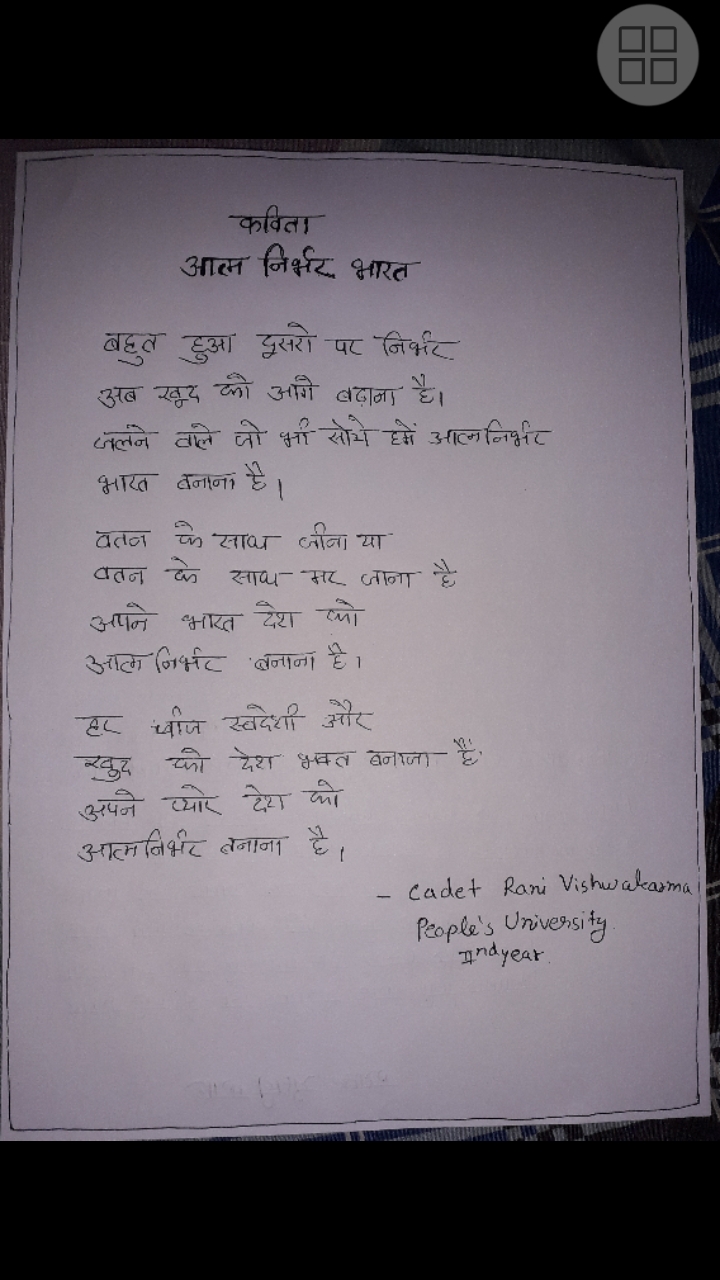 कविता
आत्म निर्भर भारत
बहुत हुआ दूसरो पर निर्भर
अब खूद को आगे बढ़ाना है।
जलने वाले जो भी सोचे हमें आत्मनिर्भर
भारत बनाना है।
वतन के साथ जीना या
वतन के साथ मर जाना है
अपने भारत देश को
आत्म निर्भर बनाना है।
हर चीज स्वदेशी और
खुद को देश भक्त बनाना है
अपने प्यारे देश को
आत्मनिर्भर बनाना है।
- Cadet Rani Vishwakarma
People's University.
IInd year.